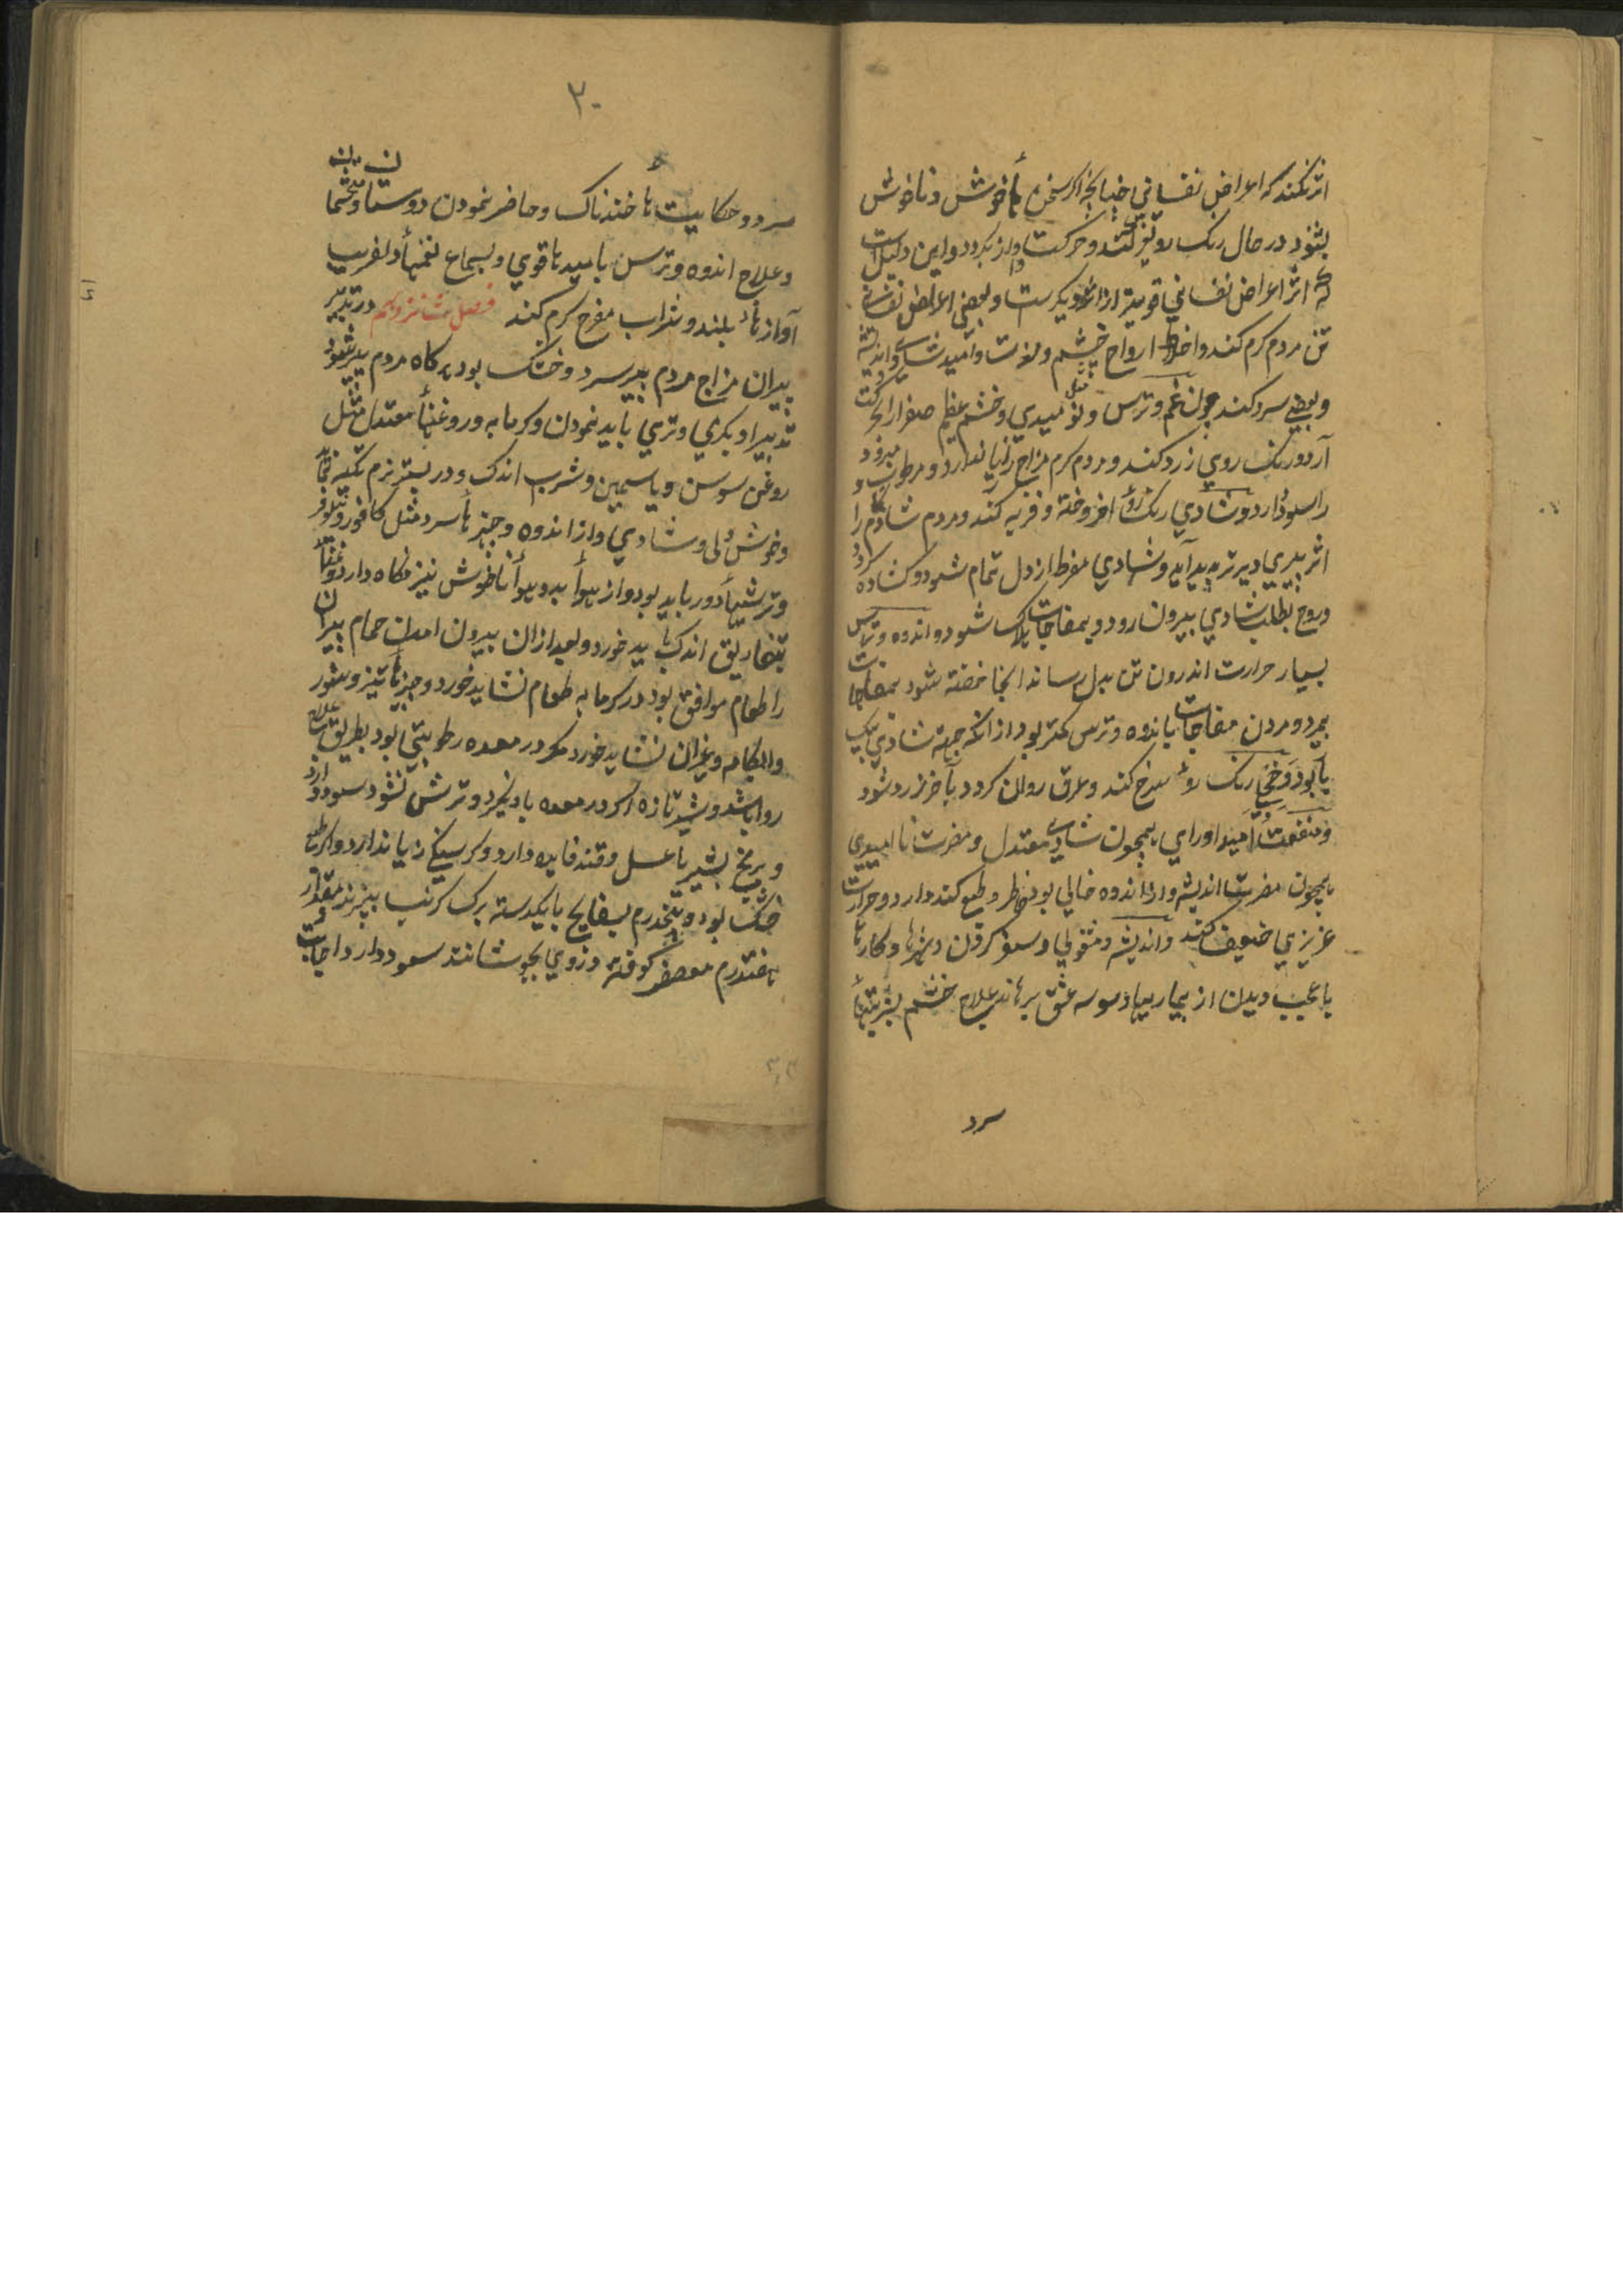 اثر نکند که اعراض نفسانی چنانچه اگر سخن هأ خوش و ناخوش
بشنود در حال رنک رو تغیر کند و حرکت و از بکردد و این دلیل است
که اثر اعراض نفسانی قویتر از اثر دیکرست و بعضی اعراض نفسانی
تن مردم کرم کند و اخلاط ارواح چون خشم و لذت و امید شادی و اندیشه
و بعضی سرد کند چون غم و ترس و نومیدی و خشم عظیم صفرا را بحرکت
آرد و رنک روی زرد کند و مردم کرم مزاج را زیان دارد و مرطوب
را سود دارد و شادی رنک رو افروخته و فربه کند و مردم شادکام را
اثر پیری دیرتر پدید آید و شادی مفرط از دل تمام شود و کشاده کردد
و روح بطلب شادی بیرون رود و بمفاجات هلاک شود و اندوه و ترس
بسیار حرارت اندرون تن بدل رساند آنجا خفته شود بمفاجات
بمیرد و مردن مفاجات باندوه و ترس کمتر بود از آنکه جهة شادی
رنک رو سرخ کند و عرق روان کردد بآخر زرد شود
و منفعت امید او رای همچون شادی معتدل و مضرت ناامیدی
همچون مضرت اندیشه و از اندوه خالی بود خاطر و طبع کند دارد و حرارت
عزیزی ضعیف کند و اندیشه و مشغولی و سفر کردن و هنرها و کارها
با عجیب دیدن از بیماریها و وسوسه عشق برهاند علاج خشم بشربتهأ
سرد
۳۰
سرد و حکایت هأ خندناک و حاضر نمودن دوستان و محتشمان
و علاج اندوه و ترس بامید هأ قوی و بسماع نغمهأ دلفریب
آواز هأ بلند و شراب مفرح کرم کند فصل شانزدهم در تدبیر
پیران مزاج مردم پیر سرد و خشک بود هرکاه مردم پیر شود
تدبیر او بکرمی و تری باید نمودن و کرمابه و روغنهأ معتدل مثل
روغن سوسن و یاسمین و شرب اندک و در بستر نرم تکیه
و خوش دلی و شادی و از اندوه و چیزهأ سرد مثل کافور و نیلوفر
و ترشیهأ دور باید بود و از هوأ بد و بوهأ ناخوش نیز نکاه دارد و غذا
بتفاریق اندک باید خورد و بعد از ان بیرون امدن حمام پیران
را طعام موافق بود در کرمابه طعام نشاید خورد و چیزهأ تیز و شور
و ابکامه و غیر ان نشاید خورد مکر در معده رطوبتی بود بطریق علاج
روا باشد و شیر تازه اکر در معده باد نکیرد و ترش نشود سود دارد
و برنج بشیر با عسل و قند فایده دارد و کرسنکی زیان دارد و اکر طبع
خشک بود و پنجدرم بسفایج با یکدسته برک کرنب بپزند و مقدار
هفتدرم معصفر کوفته در وی بجوشانند سود دارد اجابت